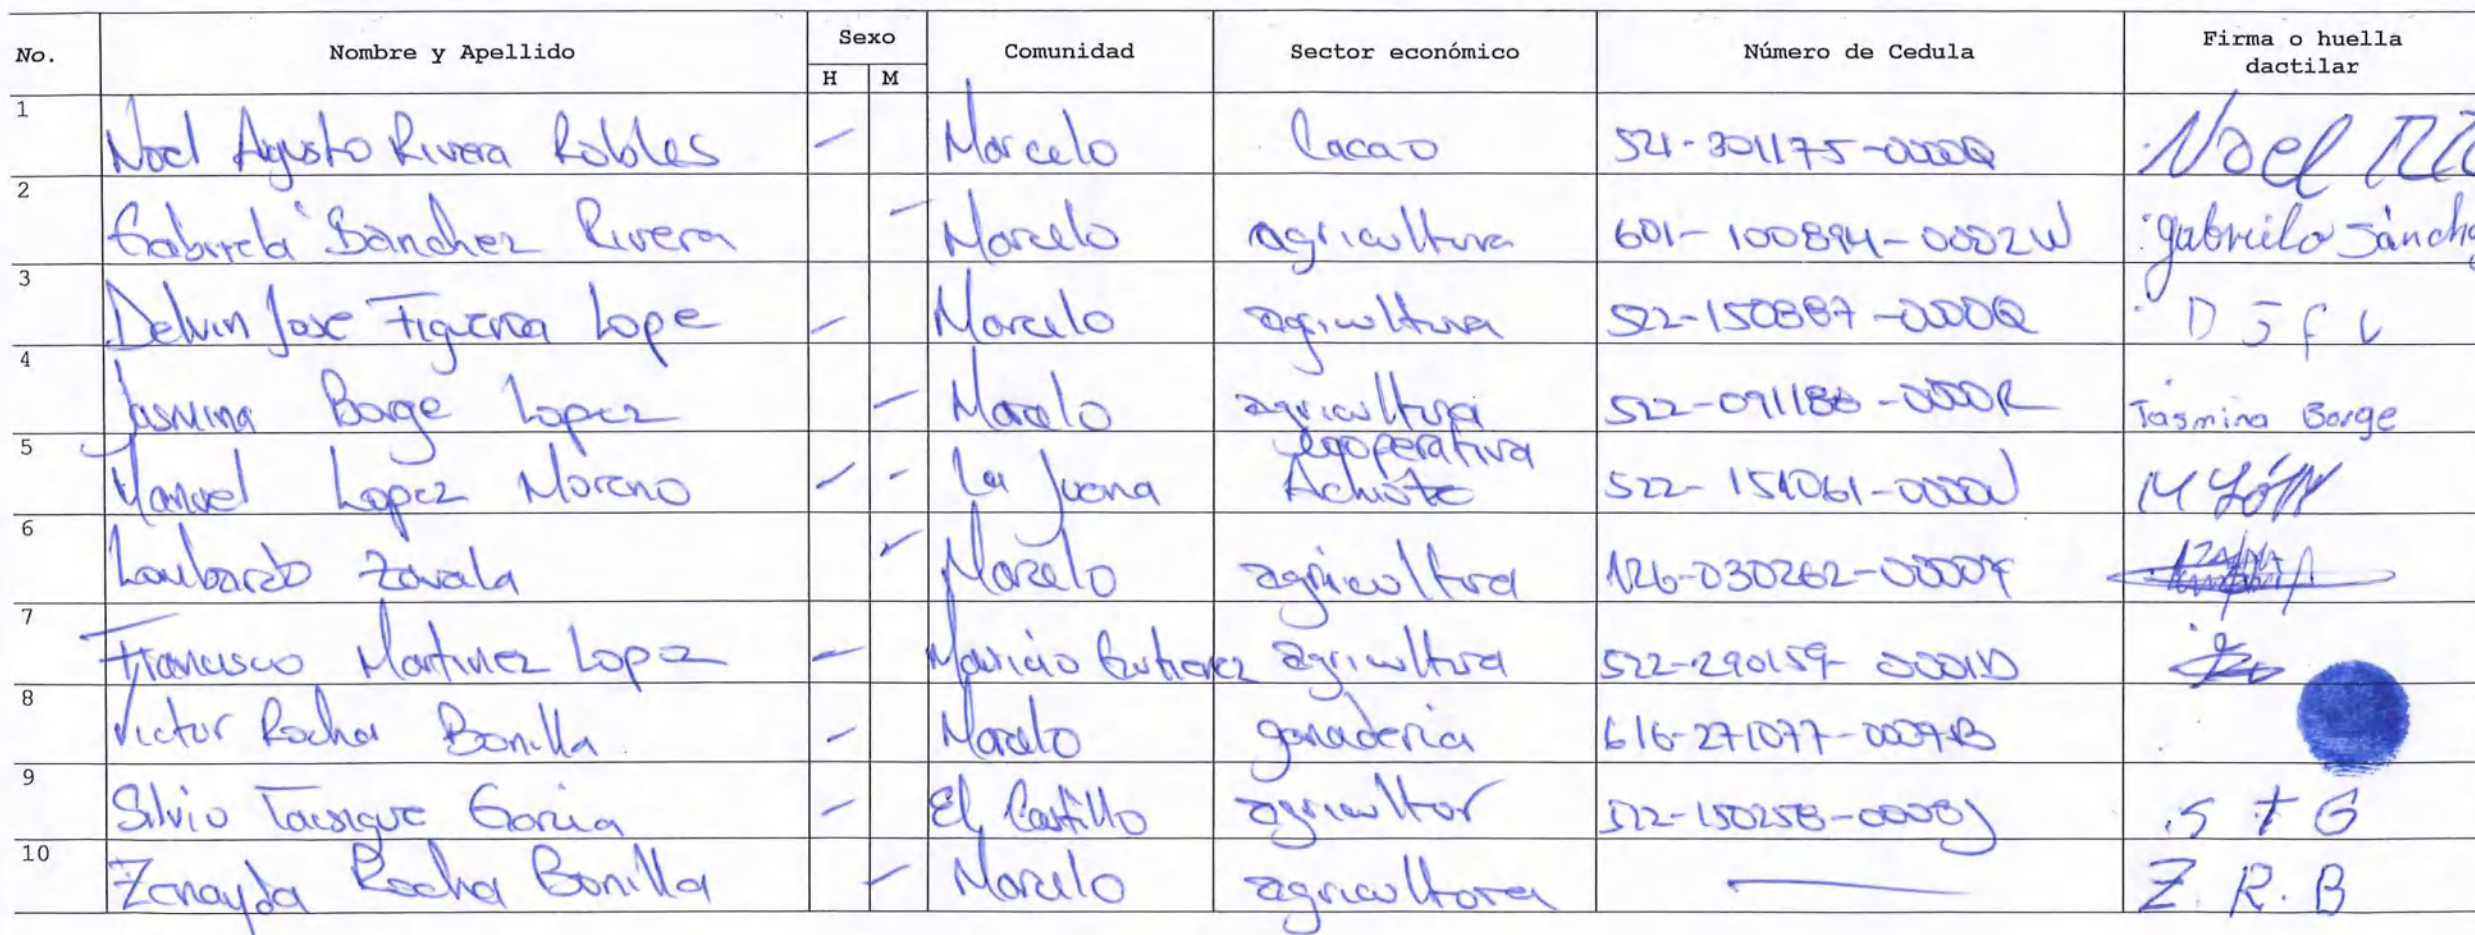 No. Nombre y Apellido Sexo Comunidad Sector económico Número de Cedula Firma o huella dactilar
H M
1 Noel Agusto Rivera Robles Marcelo Cacao 521-301175-0000Q Noel
2 Gabirela Sanchez Rivera Marcelo agricultura 601-100894-0002W gabriela Sánchez
3 Delvin Jose Figueroa Lope Marcelo agricultura 522-150887-0000Q D J F L
4 Jasmina Borge Lopez Marcelo agricultura 522-091188-0000R Jasmina Borge
5 Manuel Lopez Moreno La Juana cooperativa Achiote 522-151061-0000J
6 Zavala Marcelo agricultura
7 Francisco Martinez Lopez Mauricio Gutierrez agricultura 522-290159-0001D
8 Victor Rocha Bonilla Marcelo ganaderia
9 Silvio Garcia El Castillo agricultor 522-150258-0000J S T G
10 Zenayda Rocha Bonilla Marcelo agricultora Z. R. B